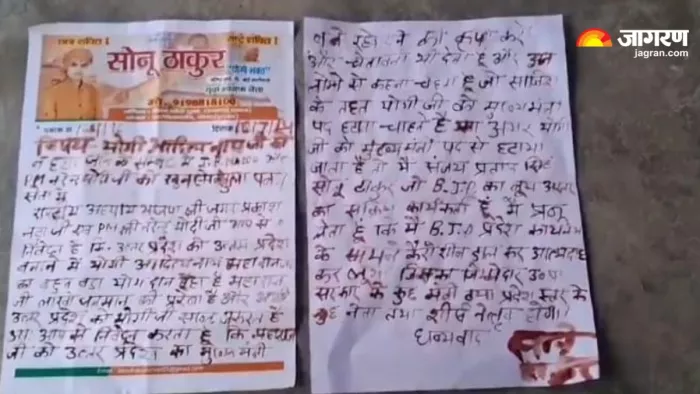 जागरण
jagran.com
छात्र शक्ति राष्ट्र शक्ति
सोनू ठाकुर
युवा भाजपा नेता
मो. 9198818100
दिनांक
विषय योगी आदित्यनाथ जी को
न हटाए जाने के सम्बन्ध में J.P. Nadda और
PM नरेन्द्र मोदी जी को खून से खुला पत्र
सेवा में
राष्ट्रीय अध्यक्ष भाजपा श्री जगत प्रकाश
नड्डा जी एवं PM श्री नरेन्द्र मोदी जी आप से
निवेदन है कि उत्तर प्रदेश को उत्तम प्रदेश
बनाने में योगी आदित्यनाथ महाराज जी
का बहुत बड़ा योगदान रहा है महाराज
जी लाखो जनमान की प्रेरणा है और
उत्तर प्रदेश को योगी जी सख्त जरूरत है
आप से निवेदन करता है कि महाराज
जी को उत्तर प्रदेश का मुख्यमंत्री
बने रहने देने की कृपा करे
और चेतावनी भी देता हूँ और उन
लोगो से कहना चाहता हूँ जो साजिश
के तहत योगी जी को मुख्यमंत्री
पद हटाना चाहते है अगर योगी
जी को मुख्यमंत्री पद से हटाया
जाता है तो मै संजय प्रताप सिंह
सोनू ठाकुर जो B.J.P का बूथ अध्यक्ष
का सक्रिय कार्यकर्ता हूँ मै प्रण
लेता हूँ कि मै B.J.P प्रदेश कार्यालय
के सामने कैरोसीन डाल कर आत्मदाह
कर लूंगा जिसका जिम्मेदार उ०प्र०
सरकार के कुछ मंत्री तथा प्रदेश स्तर के
कुछ नेता तथा शीर्ष नेतृत्व होगा।
धन्यवाद